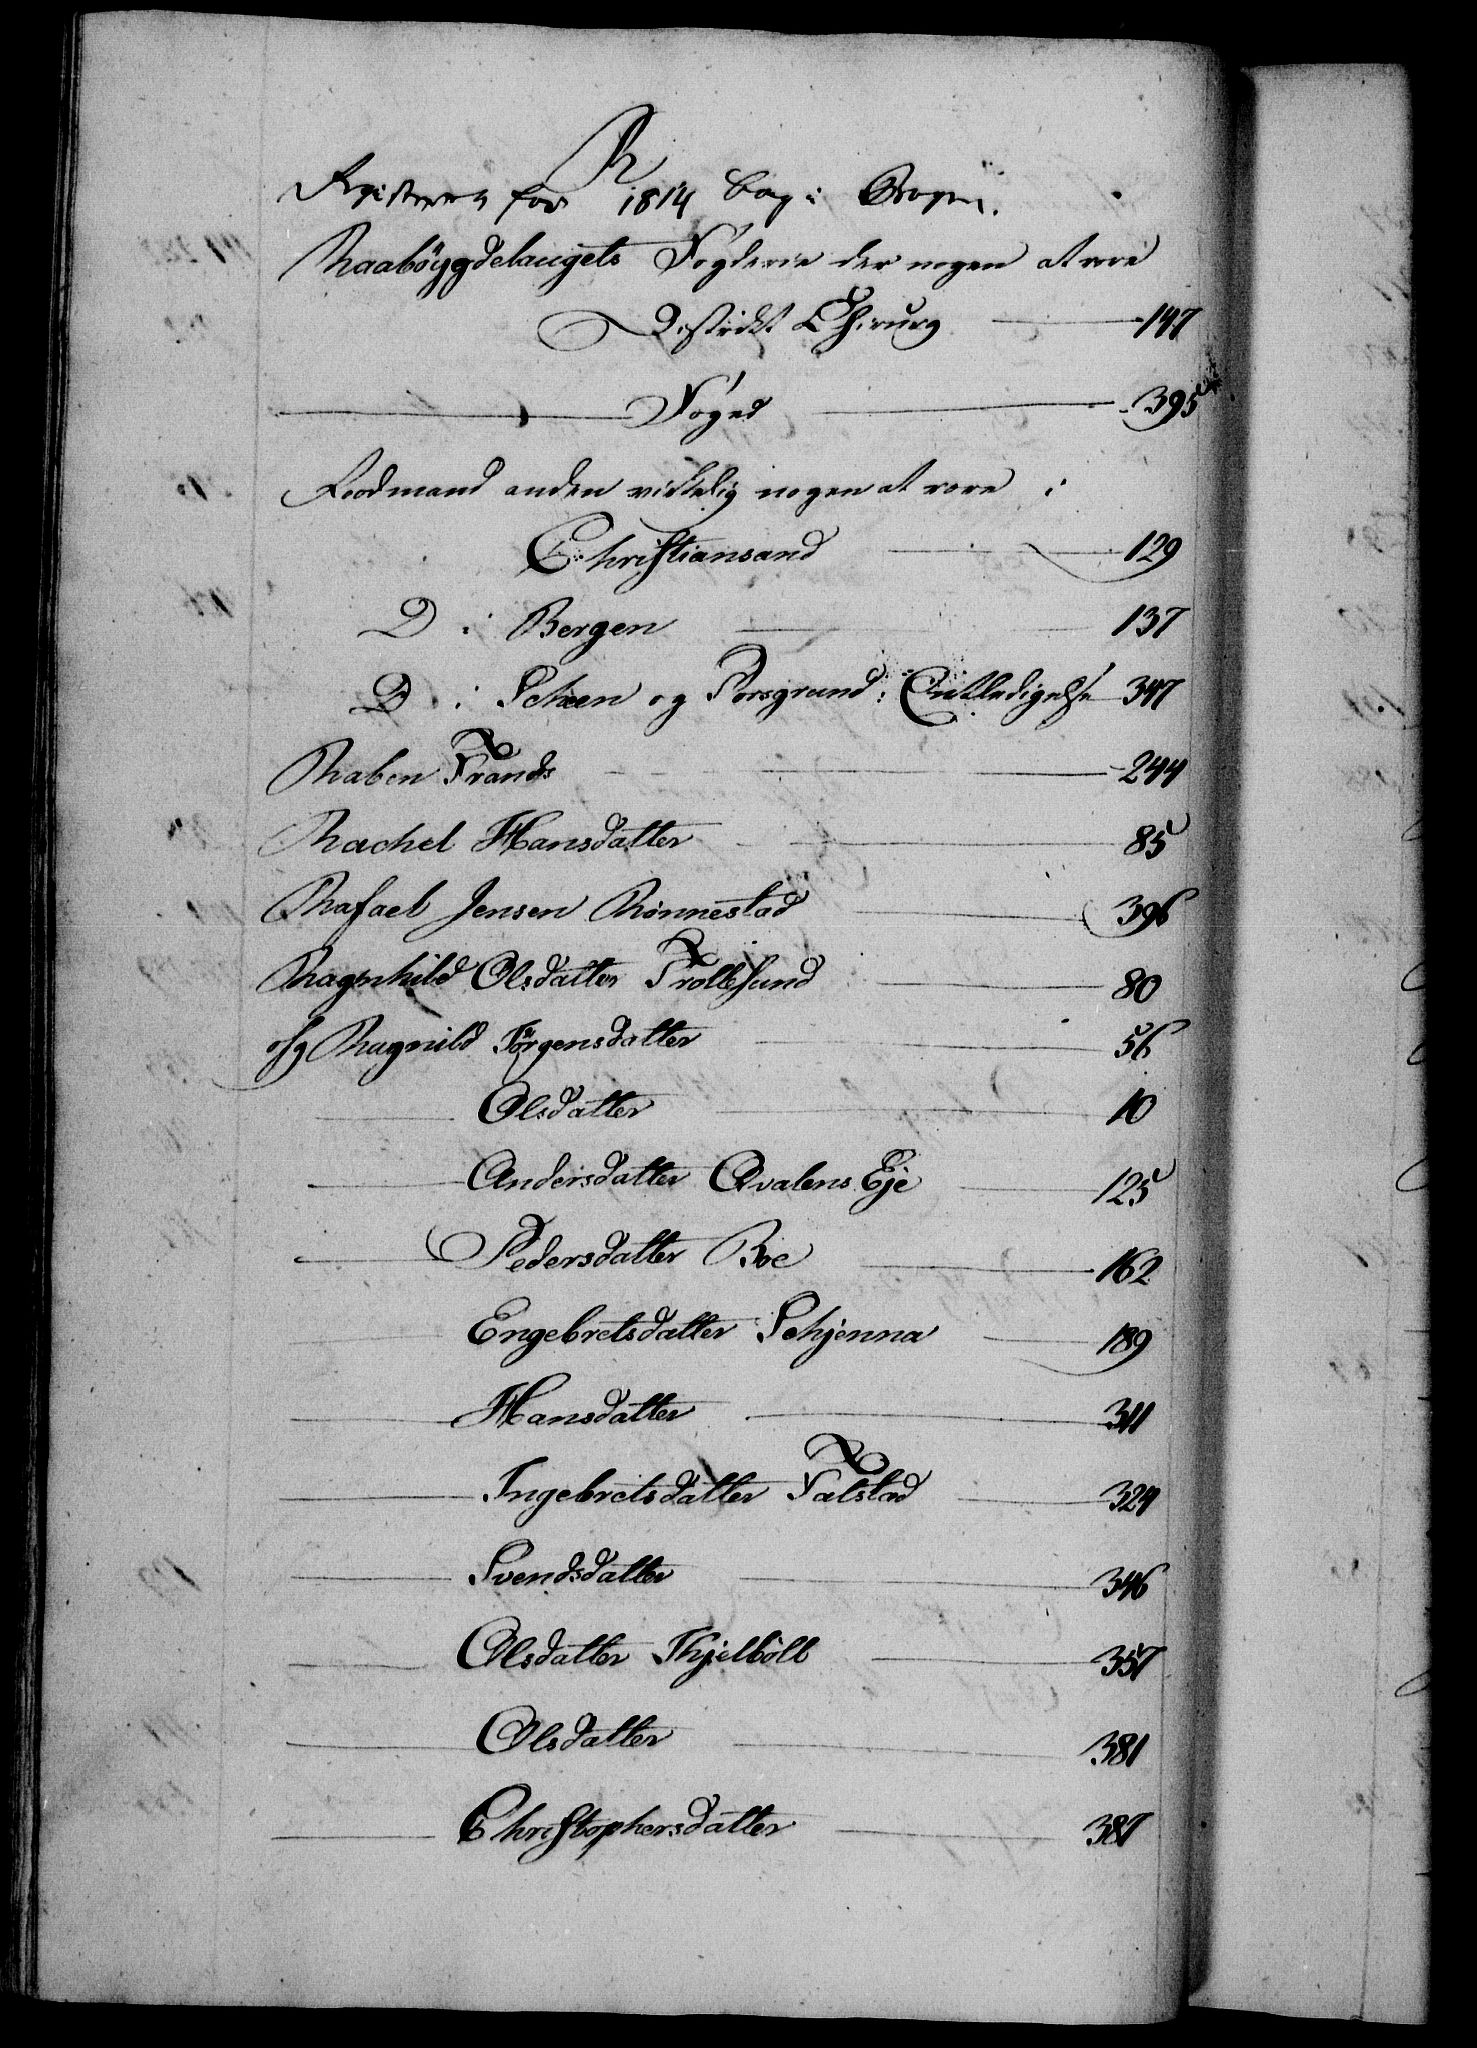 R
Registeret for 1814 bag i Bogen.
Raabøygdelaugets Fogderie der nogen at være
District Chirurg 147
Foged 395
Raadmand anden virkelig nogen at være i
Christiansand 129
D i Bergen 137
D i Scheen og Porsgrund: Entledigelse 347
Raben Trands 244
Rachel Hansdatter 85
Rafael Jensen Rønnestad 396
Ragnhild Olsdatter Trollesund 80
Ragnild Jörgensdatter 56
Olsdatter 10
Andersdatter Qvalens Eje 125
Pedersdatter Boe 162
Engebretsdatter Schjenna 189
Hansdatter 311
Ingebretsdatter Fatstad 324
Svendsdatter 346
Olsdatter Thjelbøll 357
Olsdatter 381
Christophersdatter 387